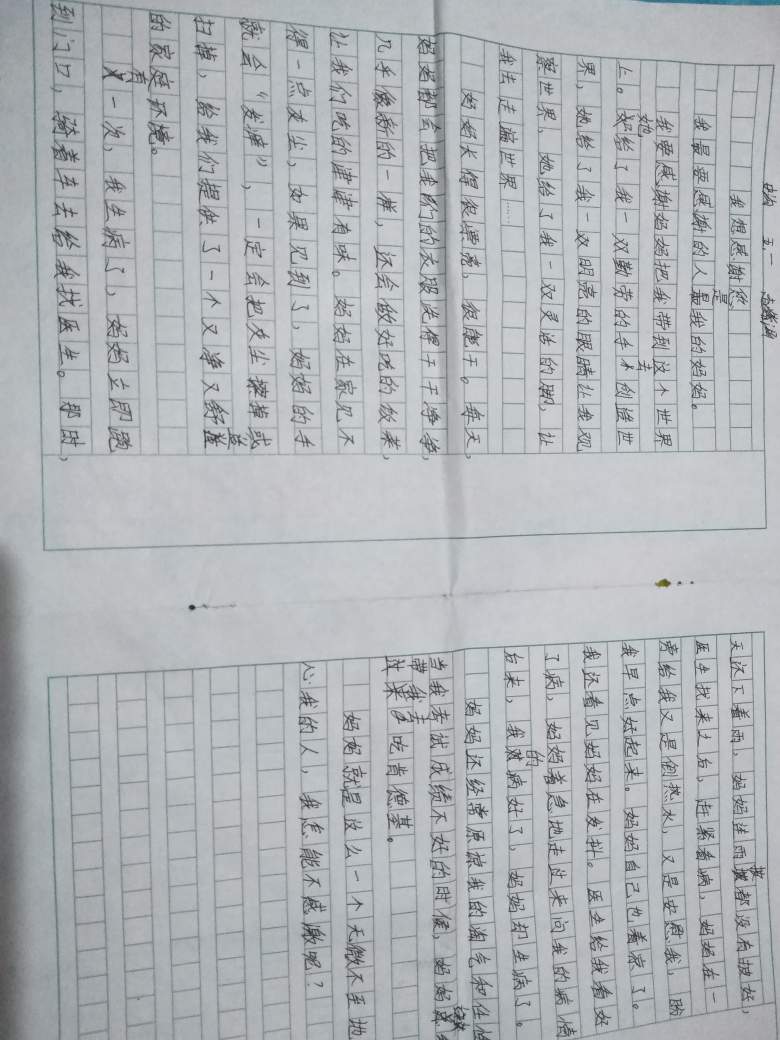 五.一
我想感谢您
我最要感谢的人是我的妈妈。
我要感谢妈妈把我带到这个世界
上。她给了我一双勤劳的手去创造世
界,她给了我一双明亮的眼睛让我观
察世界,她给了我一双灵活的脚,让
我去走遍世界……
妈妈长得很漂亮,很能干。每天,
妈妈都会把我们的衣服洗得干干净净,
几乎像新的一样,还会做好吃的饭菜,
让我们吃的津津有味。妈妈在家见不
得一点灰尘,如果见到了,妈妈的手
就会“发痒”,一定会把灰尘擦掉或
扫掉,给我们提供了一个又净又舒益
的家庭环境。
有一次,我生病了,妈妈立即跑
到门口,骑着车去给我找医生。那时,
天还下着雨,妈妈连雨披都没有披好,
医生找来之后,赶紧看病,妈妈在一
旁给我又是倒热水,又是安慰我,盼
我早点好起来。妈妈自己也着凉了。
我还看见妈妈在发抖。医生给我看好
了病,妈妈着急地走过来问我的病情
后来,我的病好了,妈妈却生病了。
妈妈还经常原谅我的淘气和任性
当我考试成绩不好的时候,妈妈
带我去吃肯德基。
妈妈就是这么一个无微不至地
心我的人,我怎能不感激呢?